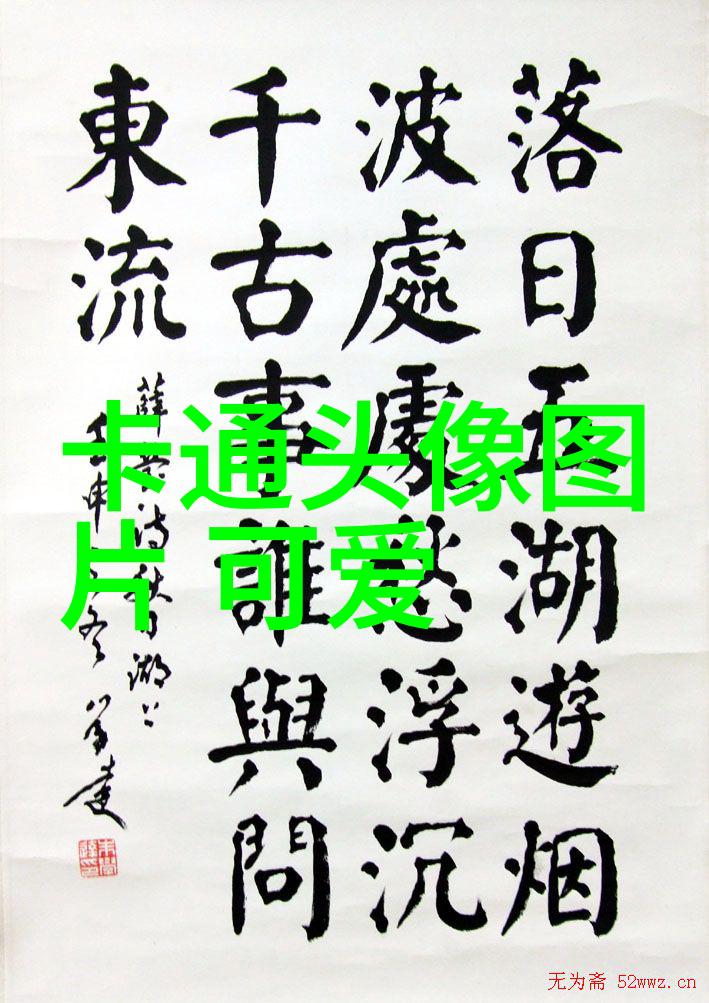 落日五湖遊烟
波處處愁浮沉
千古事誰與問
東流
薛莹诗秋日湖上
壬申冬
卡通头像图
片 可爱
无为斋 52wwz.cn